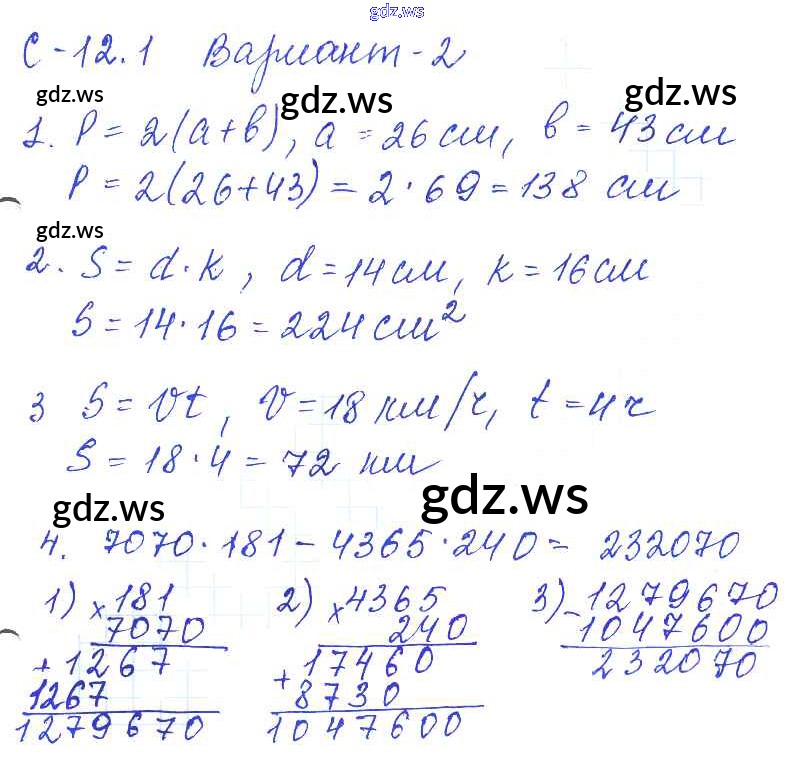 gdz.ws
С-12.1 Вариант-2
gdz.ws gdz.ws gdz.ws
1. P = 2(a+b), a = 26 см, b = 43 см
P = 2(26+43) = 2·69 = 138 см
gdz.ws
2. S = d·k, d = 14 см, k = 16 см
S = 14·16 = 224 см²
3 S = Vt, V = 18 км/ч, t = 4 ч
S = 18·4 = 72 км
gdz.ws gdz.ws
4. 7070·181 - 4365·240 = 232070
1) × 181 2) × 4365 3) - 1279670
7070 240 1047600
+ 1267 + 17460 232070
1267 8730
1279670 1047600